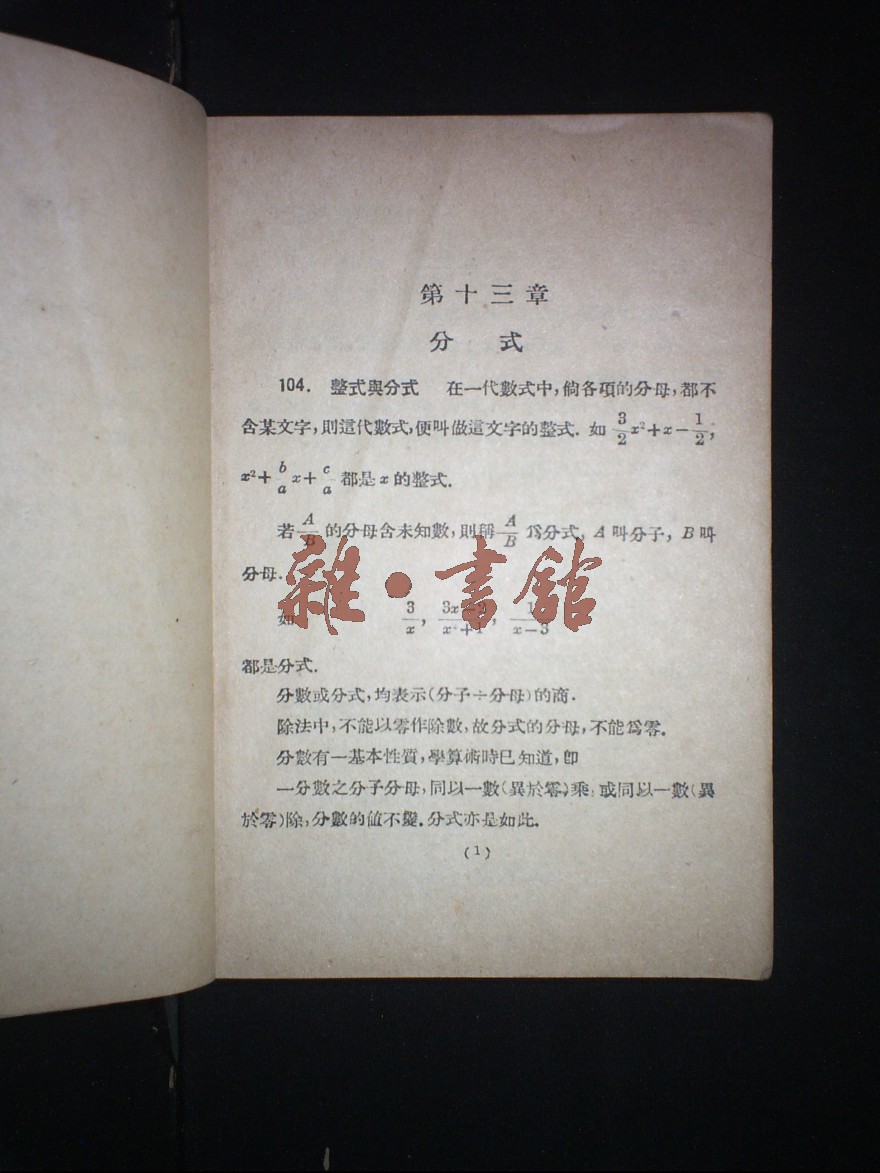 第十三章
分 式
104. 整式與分式 在一代數式中,倘各項的分母,都不
含某文字,則這代數式,便叫做這文字的整式. 如 3/2 x²+x−1/2,
x²+ b/a x+ c/a 都是 x 的整式.
若 A/B 的分母含未知數,則稱 A/B 爲分式, A 叫分子, B 叫
分母.
如 3/x, 3x /x²+1, 1/x−3
都是分式.
分數或分式,均表示(分子÷分母)的商.
除法中,不能以零作除數,故分式的分母,不能爲零.
分數有一基本性質,學算術時已知道,卽
一分數之分子分母,同以一數(異於零)乘,或同以一數(異
於零)除,分數的値不變.分式亦是如此.
(1)
雜·書館